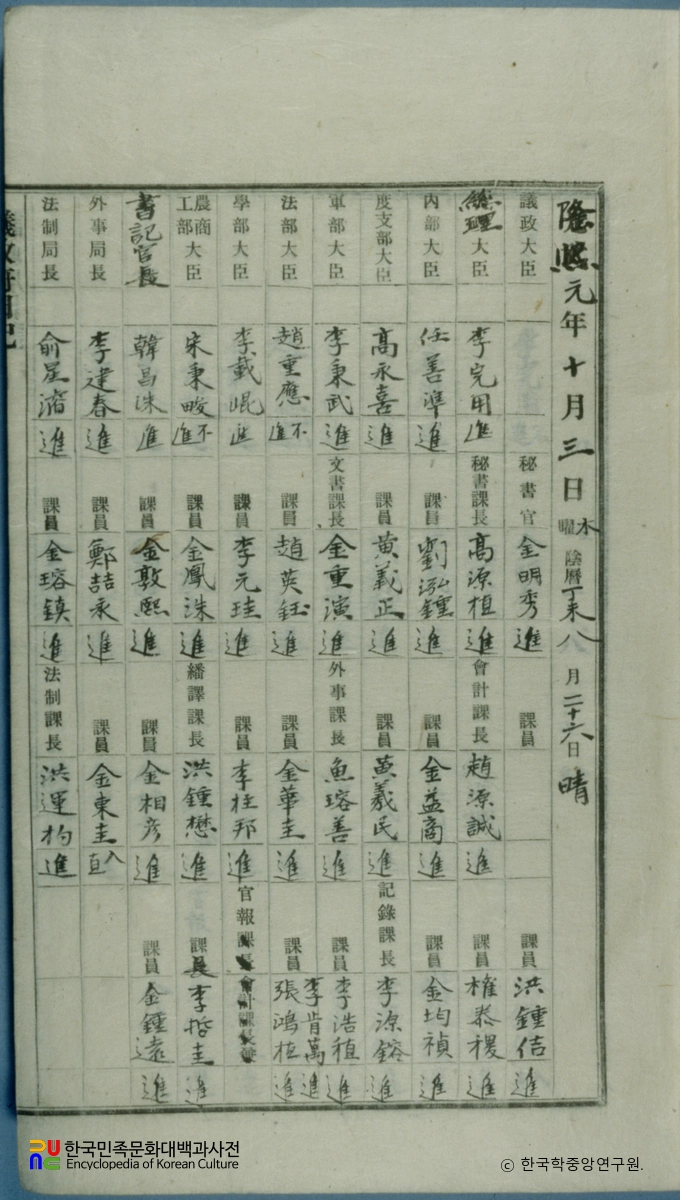 隆熙元年十月三日木曜 陰曆丁未八月二十六日 晴
議政大臣
秘書官 金明秀 進
課員
課員 洪鍾佶 進
總理大臣 李完用 進
秘書課長 高源植 進
會計課長 趙源誠 進
課員 權泰稷 進
內部大臣 任善準 進
課員 劉泓鍾 進
課員 金益商 進
課員 金均禎 進
度支部大臣 高永喜 進
課員 黃義正 進
課員 黃義民 進
記錄課長 李源鎔 進
軍部大臣 李秉武 進
文書課長 金重演 進
外事課長 魚瑢善 進
課員 李浩稙 進
李肯萬 進
法部大臣 趙重應 不進
課員 趙英鈺 進
課員 金華圭 進
課員 張鴻植 進
學部大臣 李載崐 進
課員 李元珪 進
課員 李柱邦 進
官報課長 會計課長
農商工部大臣 宋秉畯 不進
課員 金鳳洙 進
繙譯課長 洪鍾懋 進
課員 李哲圭 進
書記官長 韓昌洙 進
課員 金敦熙 進
課員 金相彦 進
課員 金鍾遠 進
外事局長 李建春 進
課員 鄭喆永 進
課員 金東圭 入直
法制局長 俞星濬 進
課員 金瑢鎮 進
法制課長 洪運杓 進
議政府日記
한국민족문화대백과사전
Encyclopedia of Korean Culture
© 한국학중앙연구원.